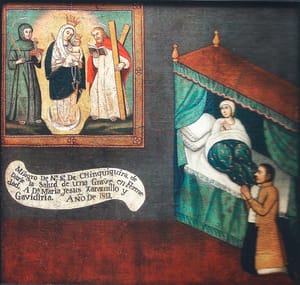 Milagro De Nª. Sª. De Chinquiquira, de
darle la Salud de una Grave, en Ferme
dad, A Dª. Maria Jesus Xaramillo y
Gavidiria. Año De 1811.